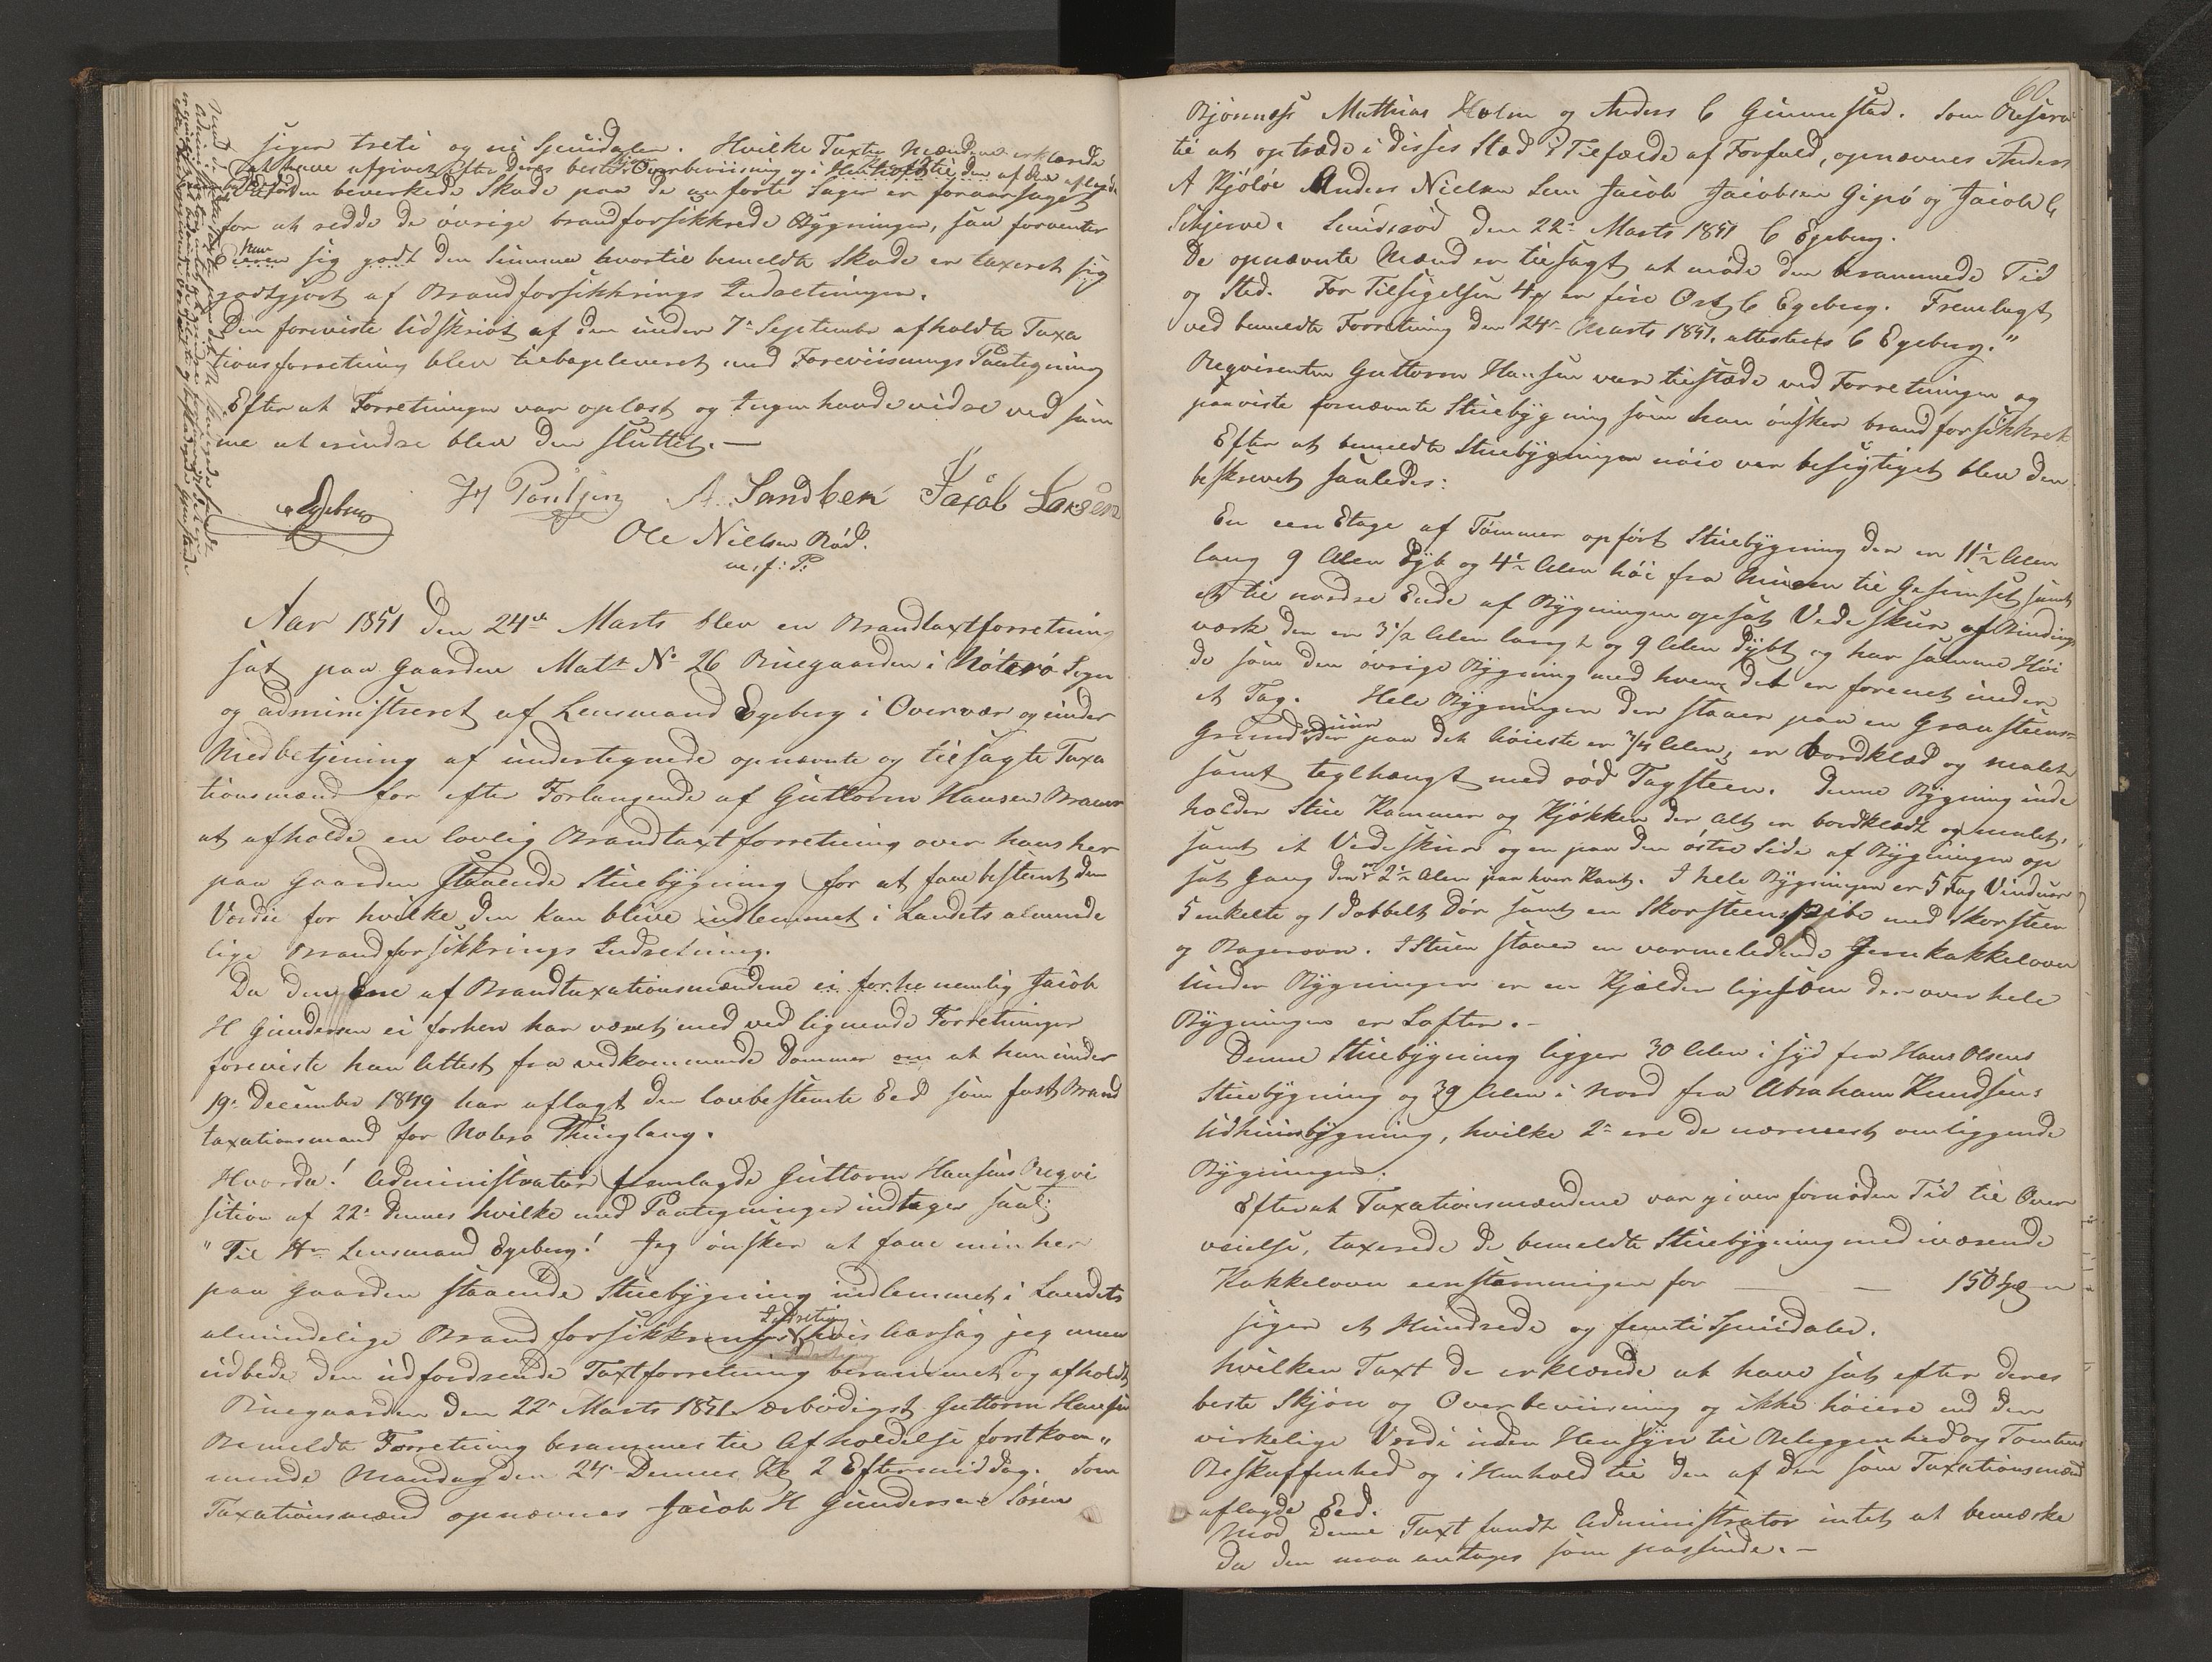 siger treti og ni Speiidaler. Hvilke Taxter Mændene erklærede
at have afgivet efter deres beste Overbeviisning og i Henhold til den af dem aflagde
bevirkede Skade paa de anførte Sager er foraarsaget
for at redde de øvrige brandforsikkrede Bygninger, saa forventer
sig godt den Summa hvortil bemeldte Skade er taxeret sig
godtgjort af Brandforsikkrings Indretningen.
Den foreviste Udskrivt af den under 7de September afholdte Taxa
tionsforretning blev tilbageleveret med Foreviisnings Paategning
Efter at Forretningen var oplæst og Ingen havde vidre ved sam
me at erindre blev den sluttet. —
Egeberg A. Sandbek Jacob Larsen
Ole Nielsen Röd.
m. f: P:
Aar 1851 den 24de Marts blev en Brandtaxtforretning
sat paa Gaarden Matr No 26 Ruegaarden i Nøterø Sogn
og administreret af Lensmand Egeberg i Overvær og under
Medbetjening af undertegnede opnævnte og tilsagte Taxa
tionsmænd for efter Forlangende af Guttorm Hansen
at afholde en lovlig Brandtaxtforretning over hans her
paa Gaarden staaende Stuebygning for at faae bestemt den
Værdie for hvilke den kan blive indlemmet i Landets alminde
lige Brandforsikkrings Indretning.
Da den Ene af Brandtaxationsmændene ei forhe nemlig Jacob
H Gundersen ei forhen har været med ved lignende Forretninger
foreviste han Attest fra vedkommende Dommer om at han under
19de December 1849 har aflagt den lovbestemte Eed som fast Brand
taxationsmand for Nøterø Thinglaug.
Hvorda! Administrator fremlagde Guttorm Hansens Reqvi
sition af 22de dennes hvilke med Paategninger indtages saal:
" Til Hr Lensmand Egeberg! Jeg ønsker at faae min her
paa Gaarden staaende Stuebygning indlemmet i Landets
almindelige Brandforsikkrings Indretning hvis Aarsag jeg maa
udbede den udfordrende Taxtforretning berammet og afholdt
Ruegaarden den 22de Marts 1851 ærbødigst Guttorm Hansen
Bemeldte Forretning berammes til Afholdelse førstkom"
mende Mandag den 24de Dennes Kl 2 Eftermiddag. Som
Taxationsmænd opnævnes Jacob H Gundersen Søren
60.
Bjønness Mathias Holm og Anders C Gunnestad. Som Reserve
til at optræde i disses Sted i Tilfælde af Forfald, opnævnes Anders
A Kjøløe Anders Nielsen Lun Jacob Jacobsen Gipö og Jacob C
Schjerve. Sundsrød den 22de Marts 1851 C Egeberg.
De opnævnte Mænd er tilsagt at møde den berammede Tid
og Sted. For Tilsigelsen 4 er fire Ort C Egeberg. Fremlagt
ved bemeldte Forretning den 24de Marts 1851, attesteres C Egeberg."
Reqvirenten Guttorm Hansen var tilstæde ved Forretningen og
paaviste fornævnte Stuebygning som han ønsker brandforsikkret
Efter at bemeldte Stuebygningen nøie var besigtiget blev den
beskrevet saaledes:
En een Etage af Tømmer opført Stuebygning der er 11½ Alen
lang 9 Alen dyb og 4½ Alen høi fra Muren til Gesimset samt
et til nordre Ende af Bygningen opsat Vedeskur af Bindings
værk den er 3½ Alen langt og 9 Alen dybt og har samme Høi
de som den øvrige Bygning med hvem det er forenet under
et Tag. Hele Bygningen der staaer paa en Graasteens-
Grundmuur der paa det høieste er ¾ Alen, er bordklæd og malet
samt teglhængt med rød Tagsteen. Denne Bygning inde
holder Stue Kammer og Kjøkken der Alt er bordklædt og malet,
samt et Vedeskur og en paa den østre Side af Bygningen op
sat Gang der er 2½ Alen paa hver Kant. I hele Bygningen er 5 Fag Vinduer
5 enkelte og 1 dobbelt Dør samt en Skorsteenspibe med Skorsteen
og Bagerovn. I Stuen staaer en varmeledende Jernkakkelovn
Under Bygningen er en Kjælder ligesom der over hele
Bygningen er Loften. –
Denne Stuebygning ligger 30 Alen i Syd fra Hans Olsens
Stuebygning og 39 Alen i Nord fra Abraham Knudsens
Udhuusbygning, hvilke 2de ere de nærmest omliggende
Bygninger.
Efterat Taxationsmændene var given fornøden Tid til Over
veielse, taxerede de bemeldte Stuebygning med iværende
Kakkelovn eenstæmmigen for — — 150
siger et Hundrede og femti Speiidaler.
hvilken Taxt de erklærede at have sat efter deres
beste Skjøn og Overbeviisning og ikke høiere end den
virkelige Verdi uden Hensyn til Beliggenhed og Tomtens
Beskaffenhed og i Henhold til den af dem som Taxationsmænd
aflagde Eed.
Mod denne Taxt fandt Administrator intet at bemærke
da den maa antages som passende. –